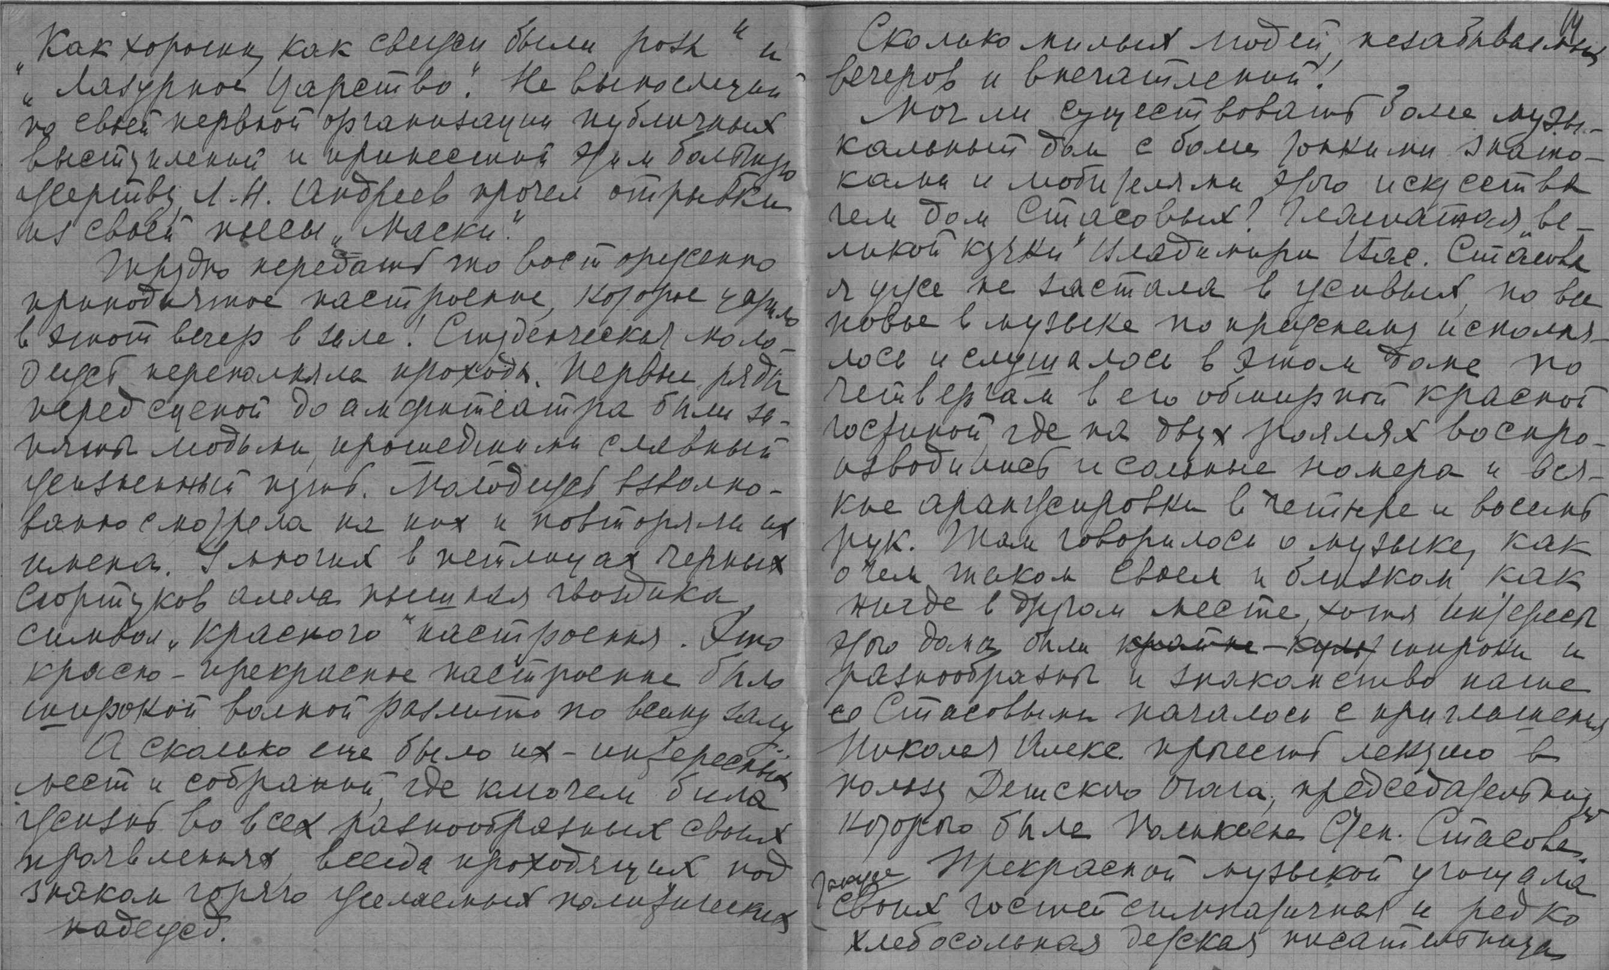 „Как хороши, как свежи были розы“ и
„Лазурное Царство“. Не выносящий
по своей нервной организации публичных
выступлений и принесший этим большую
жертву, Л. Н. Андреев прочел отрывки
из своей пьесы „Маски“.
Трудно передать то восторженно
приподнятое настроение, которое царило
в этот вечер в зале! Студенческая моло-
дежь переполняла проходы. Первые ряды
перед сценой до амфитеатра были за-
няты людьми, прошедшими славный
жизненный путь. Молодежь взволно-
ванно смотрела на них и повторяли их
имена. У многих в петлицах черных
сюртуков алела пышная гвоздика,
символ „красного“ настроения. Это
красно-прекрасное настроение было
широкой волной разлито по всему залу.
А сколько еще было их – интересных
мест и собраний, где ключем била
жизнь во всех разнообразных своих
проявлениях, всегда проходящих под
знаком горячо желаемых политических
надежд.
14
Сколько милых людей, незабываемых
вечеров и впечатлений!
Мог ли существовать более музы-
кальный дом с более тонкими знато-
ками и любителями этого искусства
чем дом Стасовых? Глашатая „ве-
ликой кучки“ Владимира Вас. Стасова
я уже не застала в живых, но все
новое в музыке по прежнему исполня-
лось и слушалось в этом доме по
четвергам в его обширной красной
гостиной, где на двух роялях воспро-
изводились и сольные номера и вся-
кие аранжировки в четыре и восемь
рук. Там говорилось о музыке, как
о чем таком своем и близком как
нигде в другом месте, хотя интересы
этого дома были крайне широки и
разнообразны и знакомство наше
со Стасовыми началось с приглашения
Николая Алекс. прочесть лекцию в
пользу Детского Очага, председательницей
которого была Поликсена Степ. Стасова.
Прекрасной музыкой угощала
также
своих гостей симпатичная и редко
хлебосольная детская писательница